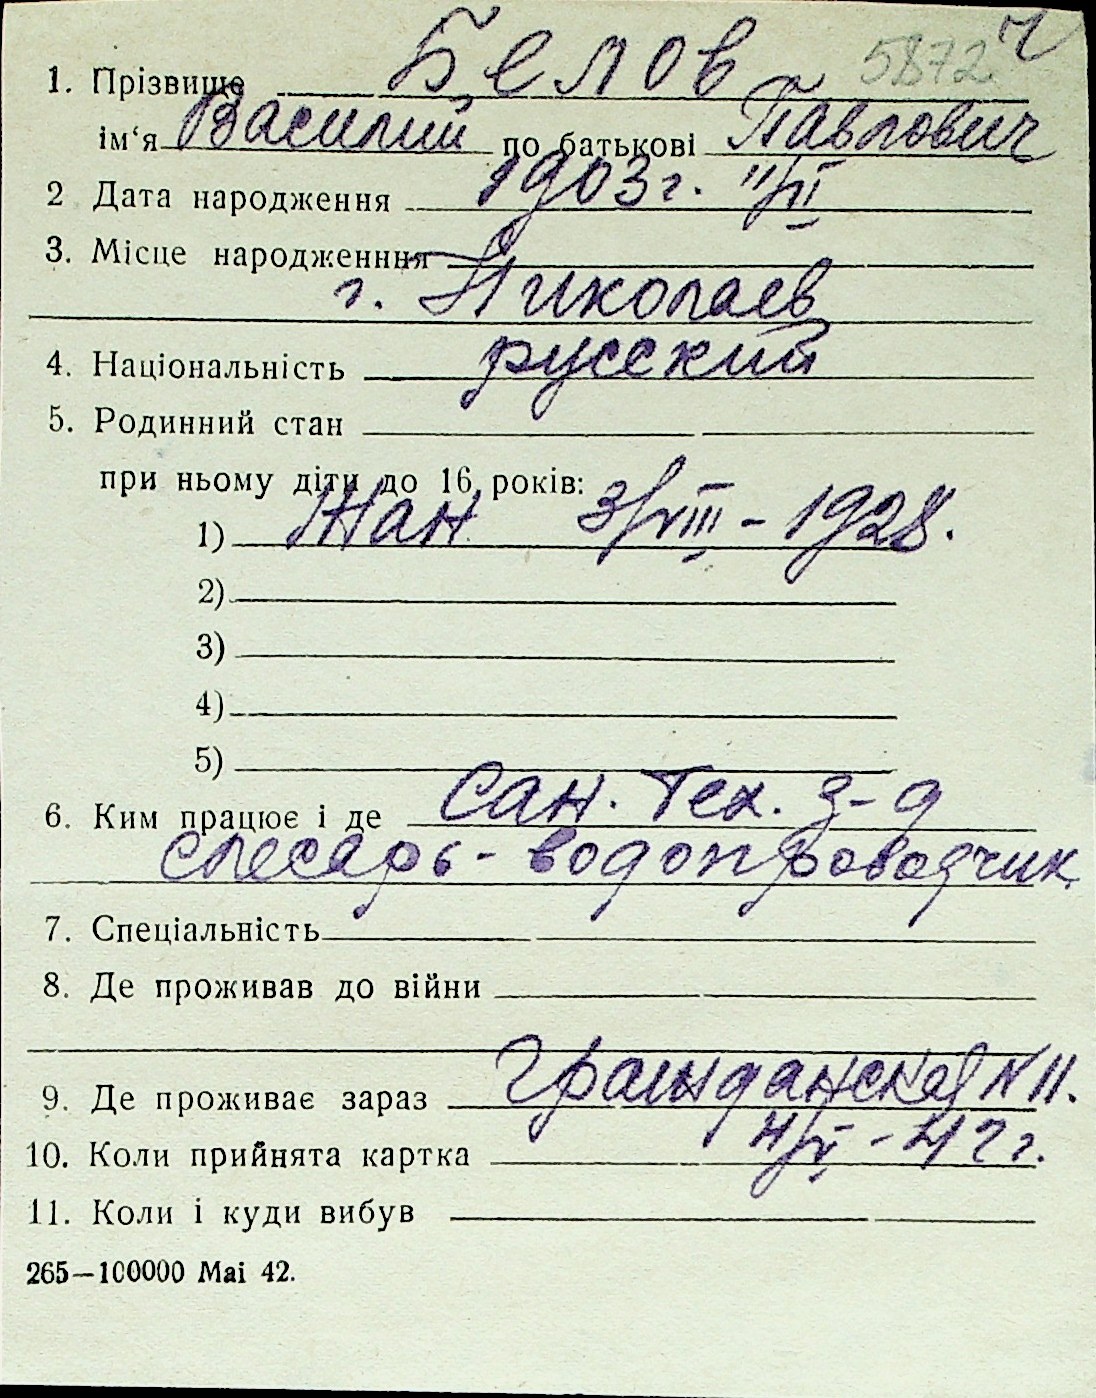 5872 Ч
1. Прізвище Белов
ім‘я Василий по батькові Павлович
2 Дата народження 1903 г. 11/VI
3. Місце народженння
г. Николаев
4. Національність русский
5. Родинний стан
при ньому діти до 16 років:
1) Жан 3/VIII - 1928.
2)
3)
4)
5)
6. Ким працює і де Сан. Тех. з-д
слесарь-водопроводчик
7. Спеціальність
8. Де проживав до війни
9. Де проживає зараз Гражданская N 11.
10. Коли прийнята картка 4/VI - 42 г.
11. Коли і куди вибув
265—100000 Mai 42.